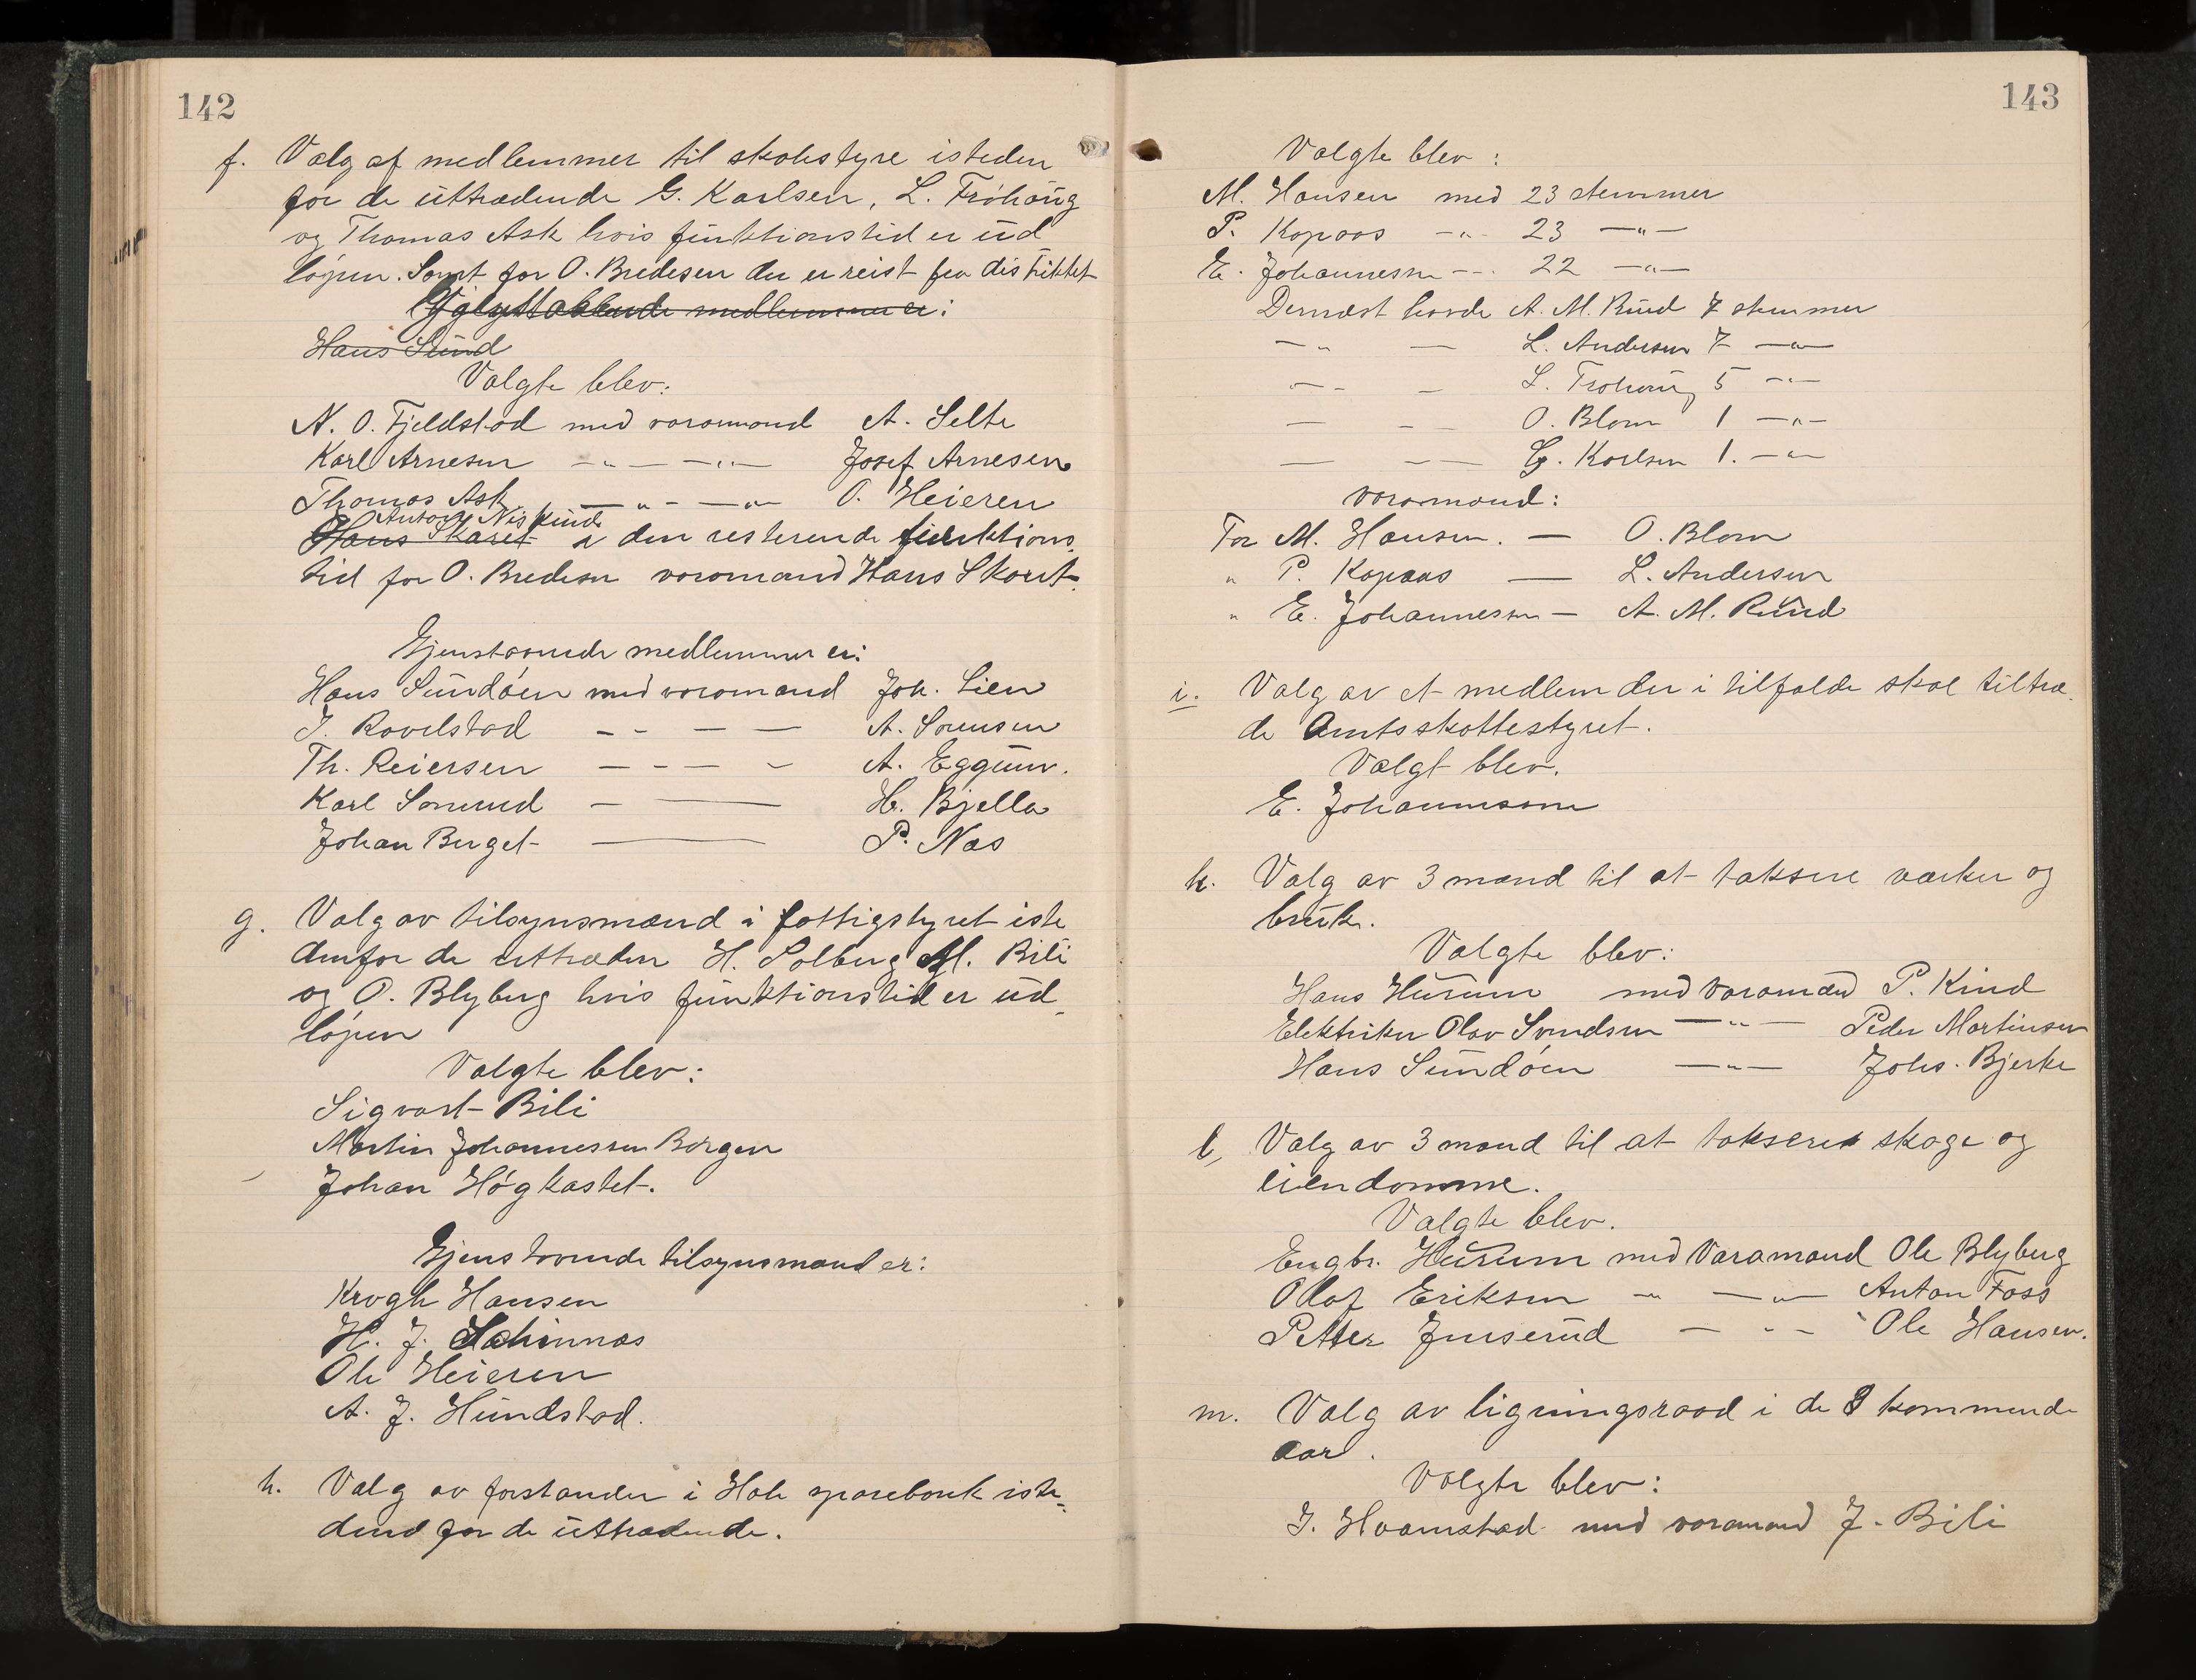 142
f. Valg af medlemmer til skolestyre isteden
for de uttrædende G. Karlsen, L. Frøhaug
og Thomas Ask hvis funktionstid er ud
løpen. Samt for O. Bredesen der er reist fra distriktet
medlemmer er:
Hans Sund
Valgte blev:
N. O. Fjeldstad med varamand A. Selte
Karl Arnesen —"— —"— Josef Arnesen
Thomas Ask —"— —"— O. Heieren
Anton Niskind
Hans Skaret i den resterende funktions
tid for O. Bredesen varamand Hans Skaret.
Gjenstaaende medlemmer er:
Hans Sundøen med varamand Joh. Lien
J. Ravelstad — - — — A. Sørensen
Th. Reiersen — - — - A. Eggum.
Karl Sørumd — —— H. Bjella
Johan Berget —— P. Næs
g. Valg av tilsynsmænd i fattigstyret iste
denfor de uttræden H. Solberg M. Bili
og O. Blyberg hvis funktionstid er ud-
løpen
Valgte blev:
Sigvart Bili
Martin Johannessen Børgen
Johan Høgkastet.
Gjenstaaende tilsynsmænd er:
Krogh Hansen
H. J. Schinnæs
Ole Heieren
A. J. Hundstad.
h. Valg av forstander i Hole sparebank iste=
dend for de uttrædende.
143
Valgte blev:
M. Hansen med 23 stemmer
P. Kopaas -"- 23 —"—
E. Johannessen --- 22 —"—
Dernæst havde A. M. Rud 7 stemmer
—"— — L. Andersen 7 —"—
—-- — L. Frøhaug 5 -"-
— -- O. Blom 1 —"—
— -— G. Karlsen 1. —"—
varamænd:
For M. Hansen. — O. Blom
" P. Kopaas — L. Andersen
" E. Johannessen — A. M. Rud
i. Valg av et medlem der i tilfælde skal tiltræ-
de Amtsskattestyret.
Valgt blev.
E. Johannesson
k. Valg av 3 mænd til at taksere værker og
bruk.
Valgte blev:
Hans Hurum med varamænd P. Kind
Elektriker Olav Svendsen —"— Peder Martinsen
Hans Sundøen —"— Johs. Bjerke
l, Valg av 3 mænd til at taksere skoge og
eiendomme.
Valgte blev.
Engbr. Hurum med Varamænd Ole Blyberg
Olaf Eriksen —"— —"— Anton Foss
Petter Juserud — - - Ole Hansen.
m. Valg av ligningsraad i de 3 kommende
aar.
Valgte blev:
J. Hvamstad med varamand J. Bili